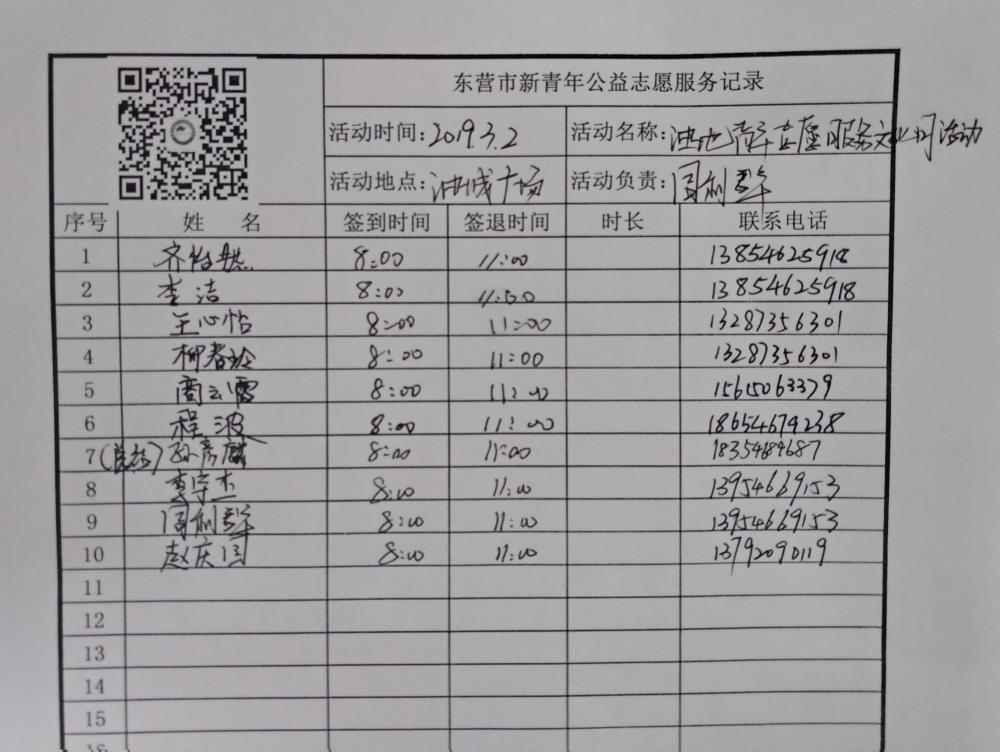 东营市新青年公益志愿服务记录
活动时间: 2019.3.2 活动名称: 油地 青年志愿服务文化 活动
活动地点: 油城广场 活动负责: 周利群
序号 姓 名 签到时间 签退时间 时长 联系电话
1 齐 8:00 11:00 13854625918
2 李洁 8:00 11:00 13854625918
3 王心怡 8:00 11:00 13287356301
4 柳春玲 8:00 11:00 13287356301
5 商云雷 8:00 11:00 15615063379
6 程波 8:00 11:00 18654679238
7 孙彦麟 8:00 11:00 18354684687
8 李宗杰 8:00 11:00 13954669153
9 周利群 8:00 11:00 13954669153
10 赵庆国 8:00 11:00 13792090119
11
12
13
14
15
16